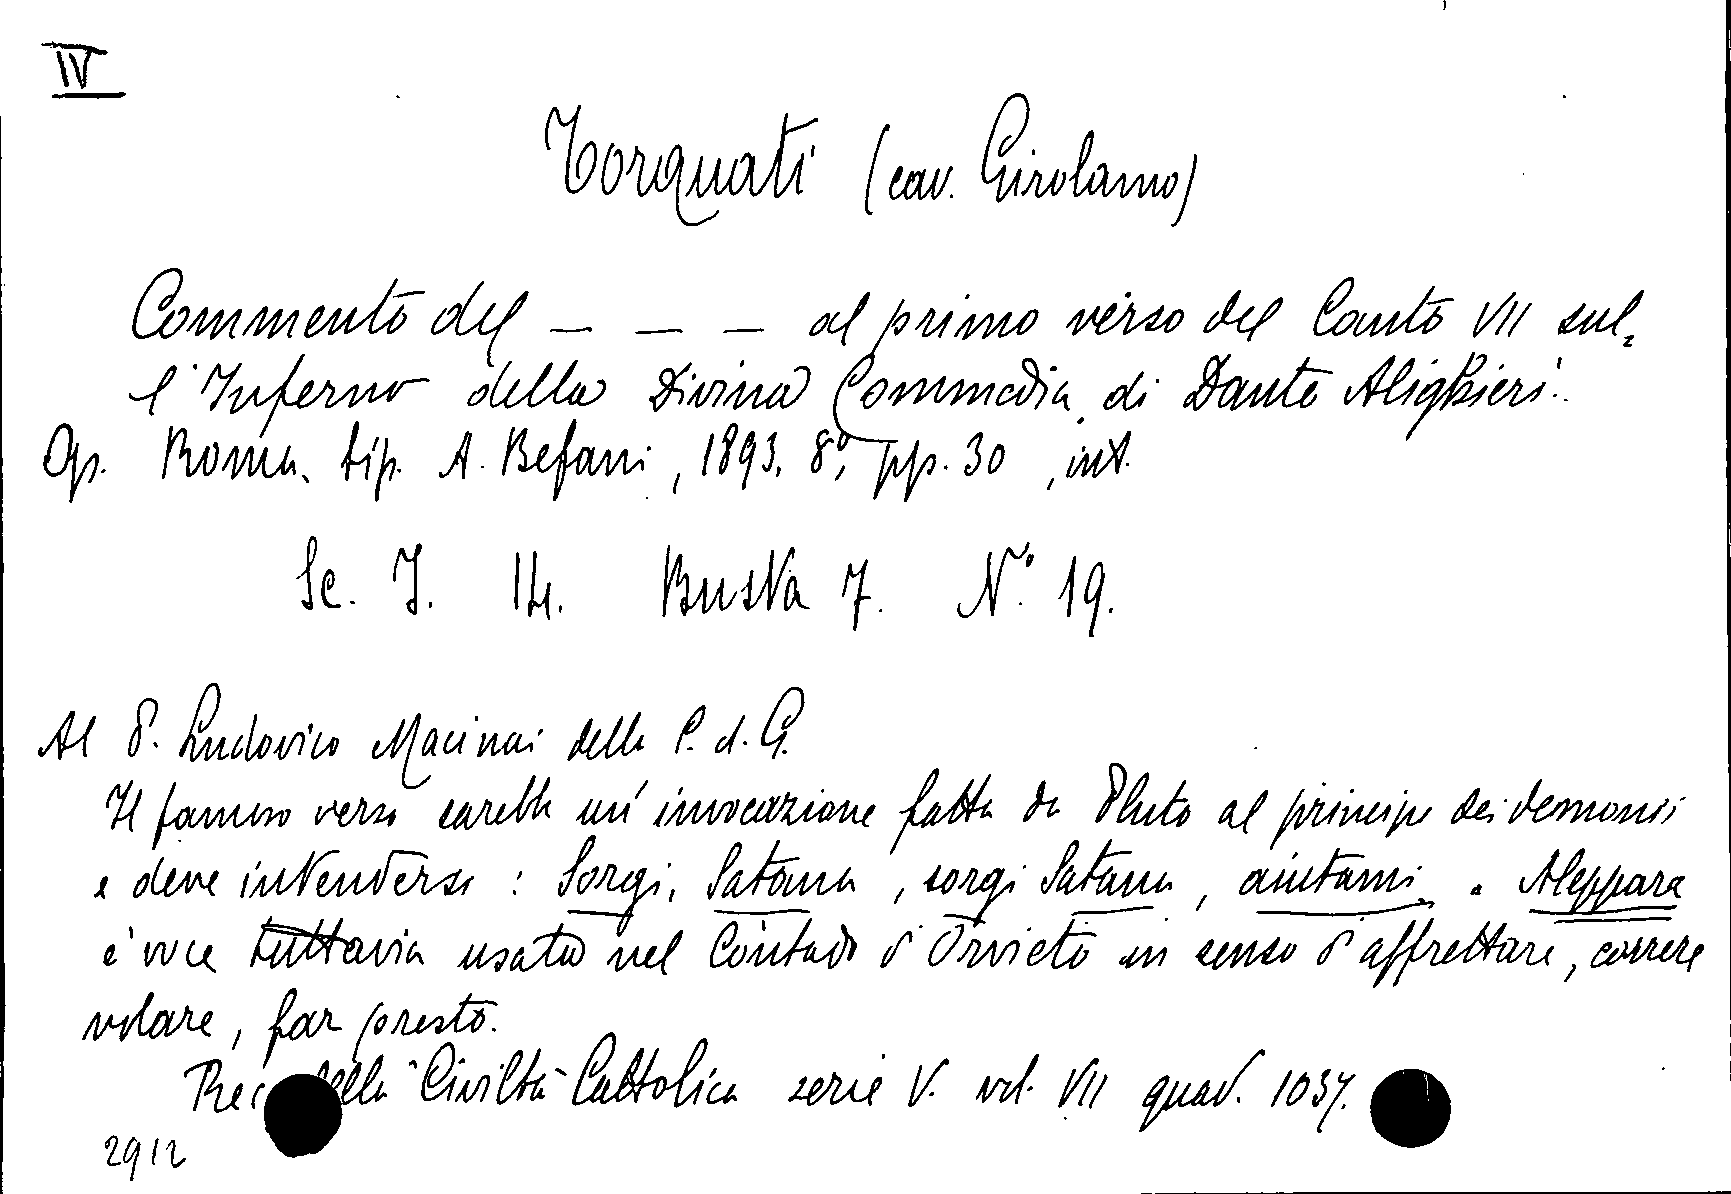 IV
Torquati (cav. Girolamo)
Commento del _ _ _ al primo verso del Canto VII sul-
l'Inferno della Divina Commedia di Dante Alighieri.
Op. Roma, tip. A. Befani, 1893, 8°, pp. 30, int.
Sc. I. 14. Busta 7. N° 19.
Al P. Ludovico Macinai della C. d. G.
Il famoso verso sarebbe un'invocazione fatta da Pluto al principe dei demonii
e deve intendersi: Sorgi, Satana, sorgi Satana, aiutami. Aleppare
è voce tuttavia usata nel Contado d'Orvieto in senso d'affrettare, correre
volare, far presto.
della "Civiltà Cattolica serie V. vol. VII quad. 1037.
2912